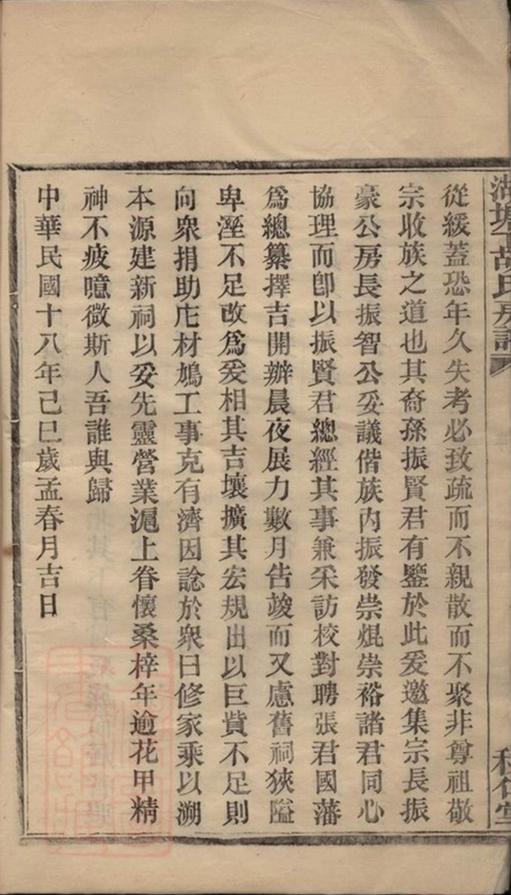 胡氏房譜
從緩蓋恐年久失考必致疏而不親散而不聚非尊祖敬
宗收族之道也其裔孫振賢君有鑒於此爰邀集宗長振
豪公房長振智公妥議偕族內振發崇焜崇裕諸君同心
協理而卽以振賢君總經其事兼采訪校對聘張君國藩
爲總纂擇吉開辦晨夜展力數月告竣而又慮舊祠狹隘
卑溼不足改爲爰相其吉壤擴其宏規出以巨貲不足則
向衆捐助庀材鳩工事克有濟因諗於衆曰修家乘以溯
本源建新祠以妥先靈營業滬上眷懷桑梓年逾花甲精
神不疲噫微斯人吾誰與歸
中華民國十八年己巳歲孟春月吉日